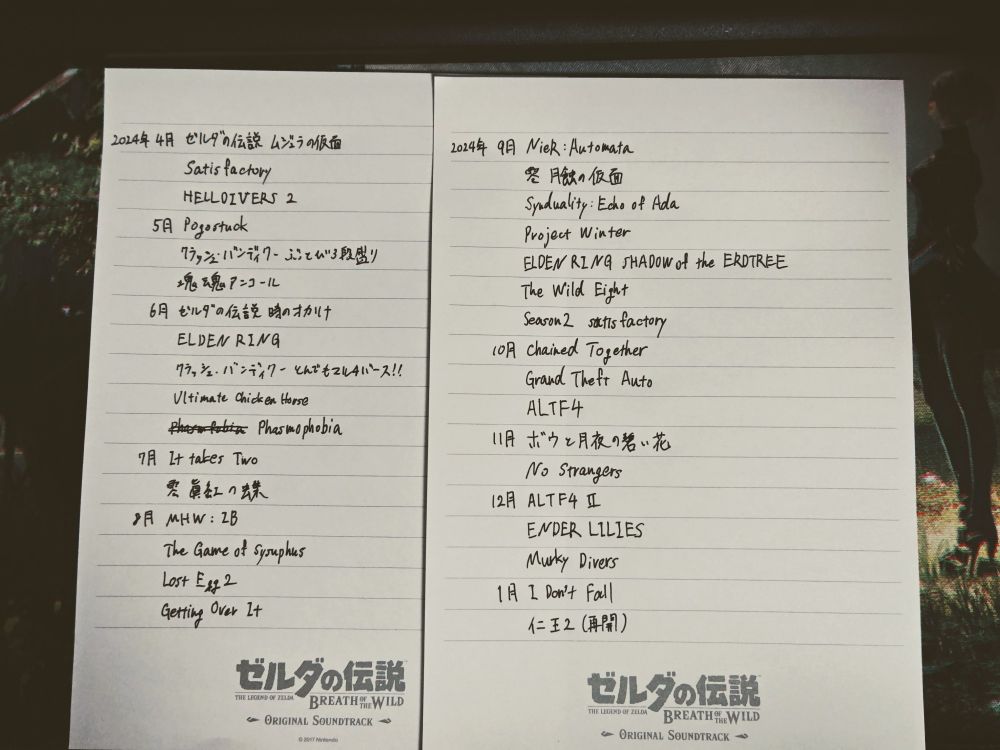 2024年 4月 ゼルダの伝説 ムジュラの仮面
Satisfactory
HELLDIVERS 2
5月 Pogostuck
クラッシュ・バンディクー ぶっとび3段盛り
塊魂アンコール
6月 ゼルダの伝説 時のオカリナ
ELDEN RING
クラッシュ・バンディクー とんでもマルチバース!!
Ultimate Chicken Horse
Phasmofobia Phasmophobia
7月 It takes Two
零 眞紅の蝶
8月 MHW:IB
The Game of Sysuphus
Lost Egg 2
Getting Over It
ゼルダの伝説
THE LEGEND OF ZELDA BREATH OF THE WILD
ORIGINAL SOUNDTRACK
© 2017 Nintendo
2024年 9月 NieR:Automata
零 月蝕の仮面
Synduality: Echo of Ada
Project Winter
ELDEN RING SHADOW of the ERDTREE
The Wild Eight
Season2 satisfactory
10月 Chained Together
Grand Theft Auto
ALTF4
11月 ボウと月夜の碧い花
No Strangers
12月 ALTF4 II
ENDER LILIES
Murky Divers
1月 I Don't Fall
仁王2(再開)
ゼルダの伝説
THE LEGEND OF ZELDA BREATH OF THE WILD
ORIGINAL SOUNDTRACK